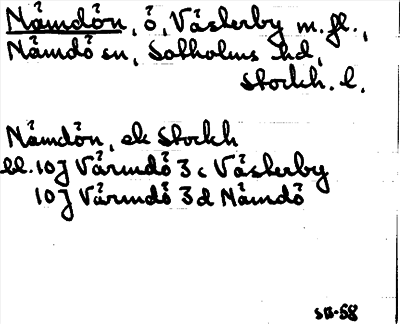 Nämdön, ö, Västerby m.fl.,
Nämdö sn, Sotholms hd,
Stockh. l.
Nämdön, ek Stockh
bl. 10J Värmdö 3c Västerby
10J Värmdö 3d Nämdö